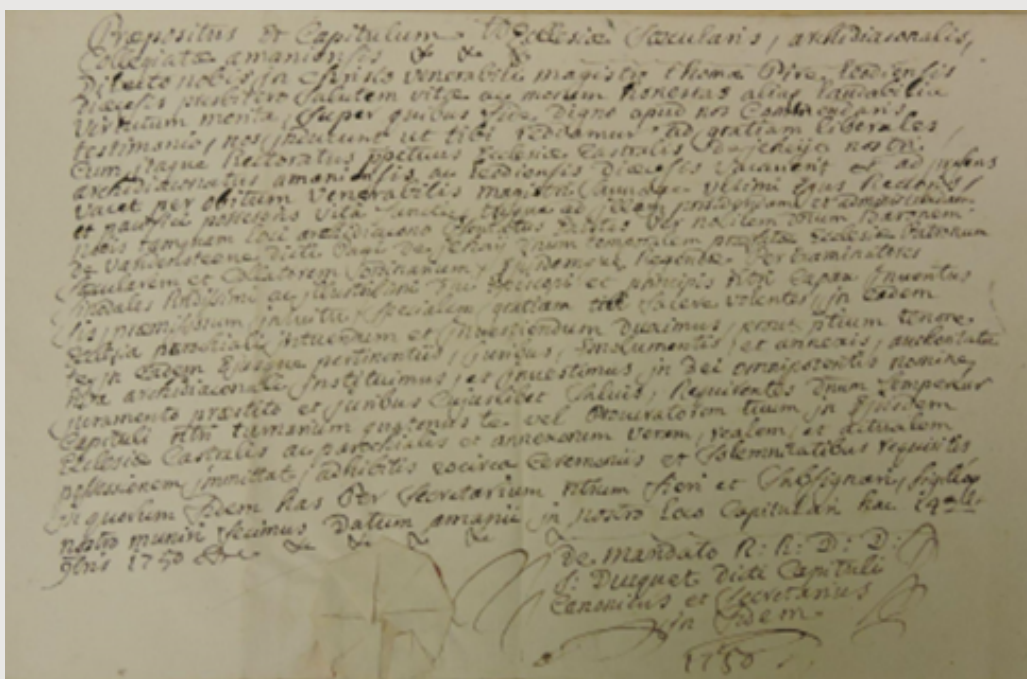 Præpositus et Capitulum Ecclesiæ Sæcularis, archidiaconalis,
Collegiatæ amaniensis & & &
Dilecto nobis in Christo venerabili magistro thomæ Pire Leodiensis
diæcesis presbitero Salutem vitæ ac morum honestas aliaq laudabilia
virtutum merita, super quibus fide digno apud nos Commendaris
testimonio, nos inducunt ut tibi reddamur ad gratiam liberales,
Cum itaque Rectoratus ppetuus Ecclesiæ Castralis de jehaije nostri
archidiaconatus amaniensis, ac Leodiensis Diæcesis vacaverit et ad præsens
vacet per obitum venerabilis magistri Sauvage ultimi Ejus Rectoris,
et pacifici possessoris vita functi, tuque ad illam
nobis tamquam loci archidiacono per nobilem Dnum Baronem
de Vandensteene dicti Pagi de jehaij Dnum temporalem Ecclesiæ Patronum
Sæcularem et Collatorem ordinarium, per Examinatores
Sinodales Rndissimi ac illustrissimi Dni Episcopi et principis Ntri Capax Inventus
Sis, præmissorum intuitu, specialem gratiam tibi facere volentes, in Eadem
Ecclesia parochiali, instituendum et investiendum Duximus, prout ptium tenore
te in Eadem Ejusque pertinentiis, juribus, Emolumentis, et annexis, authoritate
Ntra archidiaconali instituimus, et investimus, in Dei omnipotentis nomine,
juramento præstito et juribus Cujuslibet Salvis, Requirentes
Capituli Ntri quatenus te vel Procuratorem tuum in Ejusdem
Ecclesiæ Castralis ac parochialis et annexorum veram, realem, et actualem
possessionem immittat, adhibitis eocirca Ceremoniis et Solemnitatibus requisitis
in quorum fidem has Per Secretarium Ntrum fieri et Subsignari, sigilloq
nostro muniri fecimus Datum amanii in nostro Loco Capitulari hac
9bris 1750 & & & &
De mandato R: R: D: D:
J: Duquet dicti Capituli
Canonicus et Secretarius
in fidem
1750